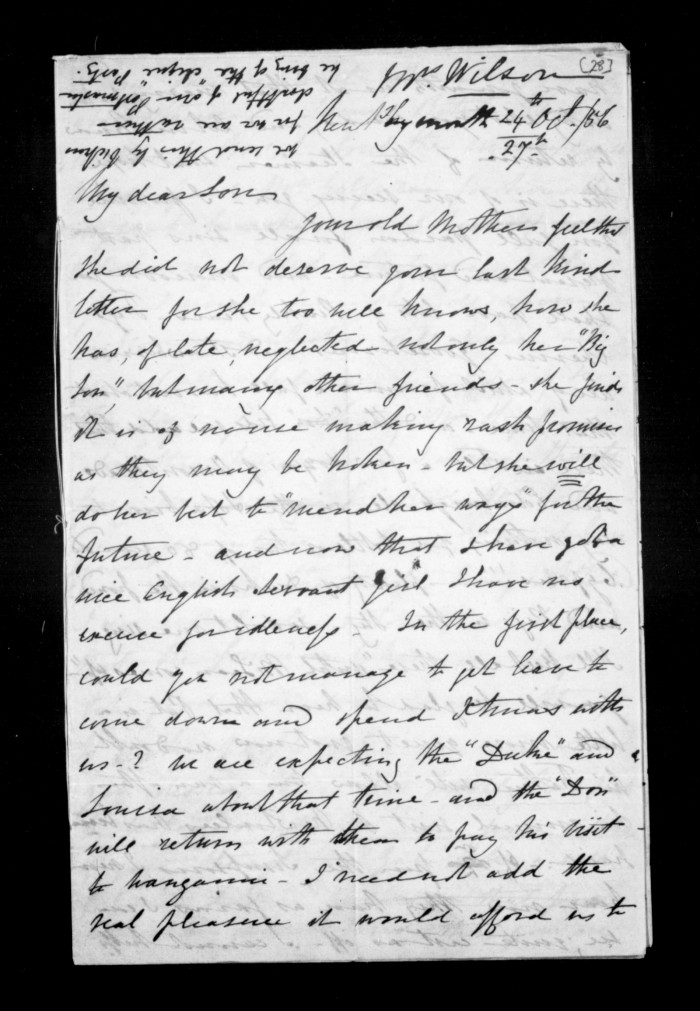 [28]
Mrs Wilson
New Plymouth 24th Octr /56
22nd
we send this by Vickers
for we are rather
doubtful of our Postmaster
he being of the "clique" Party.
My dear Son
Your old Mother feels that
she did not deserve your last kind
letter for she too well knows, how she
has, of late, neglected not only her "Big
Son", but many other friends - she finds
it is of no use making rash promises
as they may be broken - but she will
do her best to "mend her ways" for the
future - and now that I have got a
nice English Servant girl I have no
excuse for idleness - In the first place,
could you not manage to get leave to
come down and spend Xmas with
us -? We are expecting the "Duke" and
Louisa about that time - and the "Don"
will return with them to pay his visit
to Wanganui - I need not add the
real pleasure it would afford us to